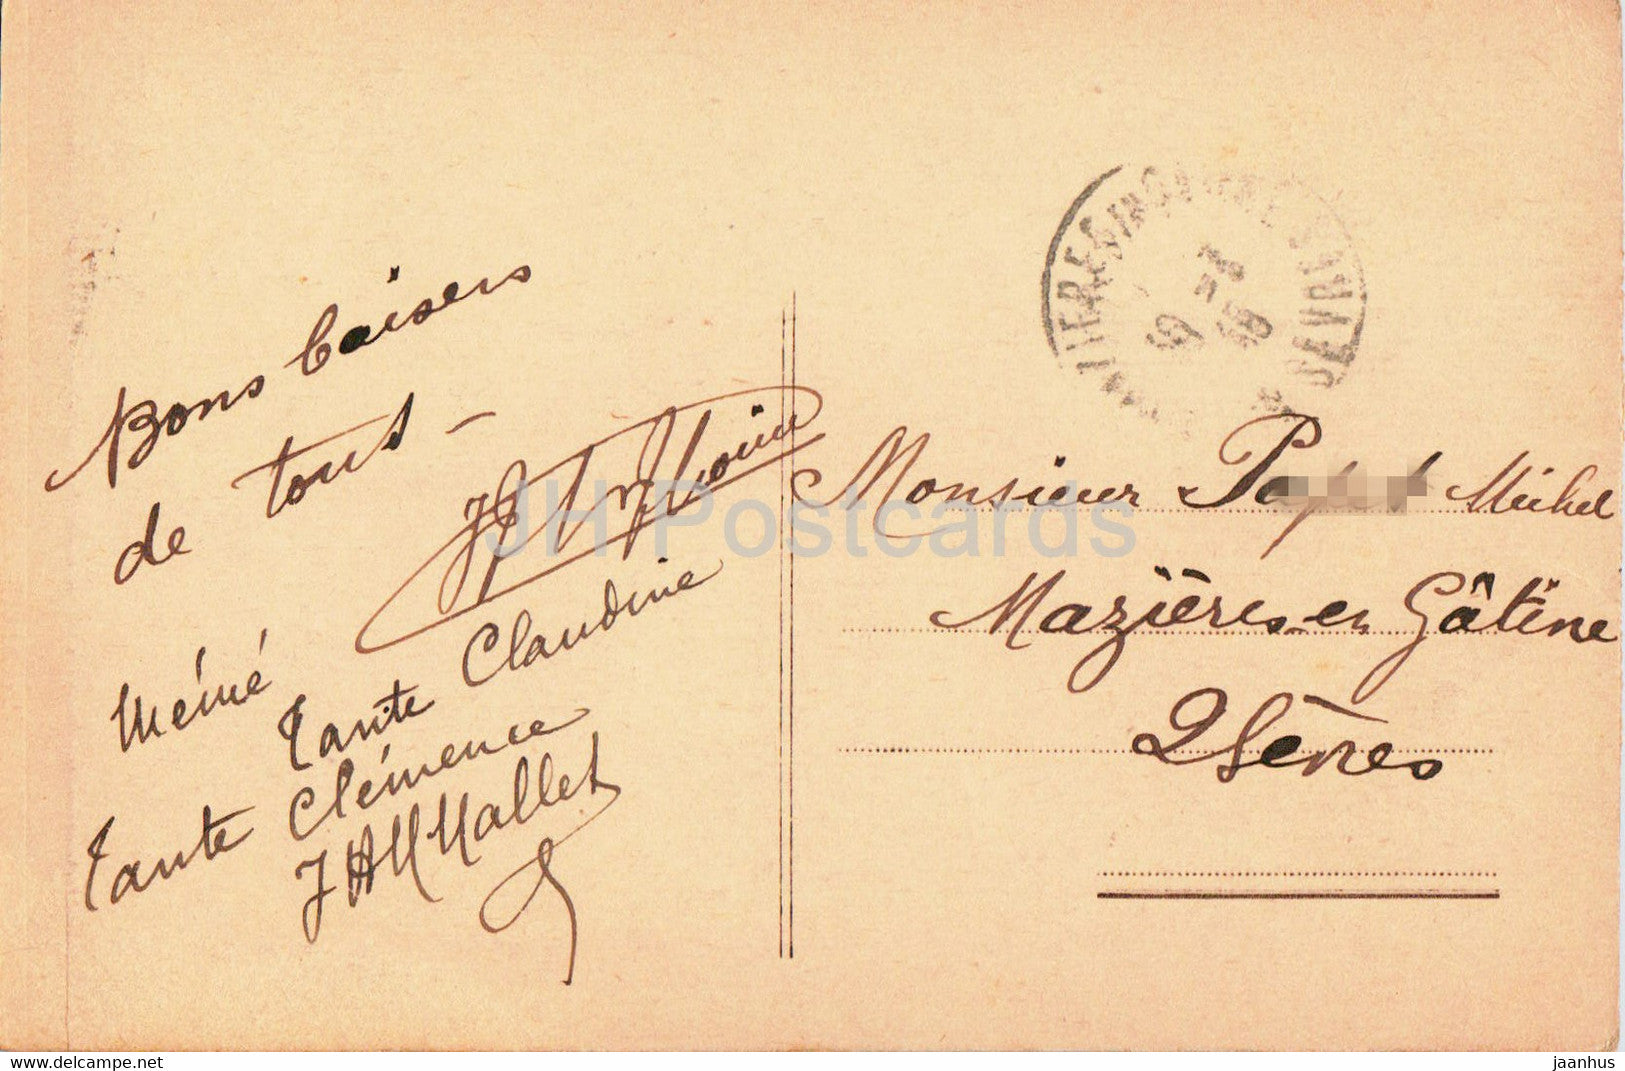 Bons baisers
de tous -
Mémé
Tante Claudine
Tante Clémence
JAM Mallet
Monsieur Michel
Mazières-en Gâtine
2 Sèvres
JH Postcards
https://www.delcampe.net
jaanhus